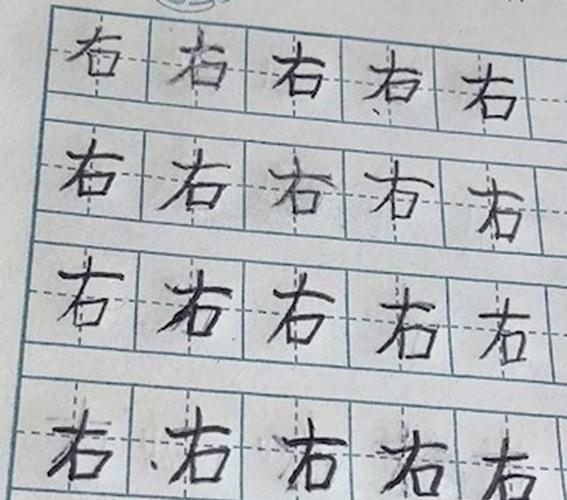 右右右右右
右右右右右
右右右右右
右右右右右